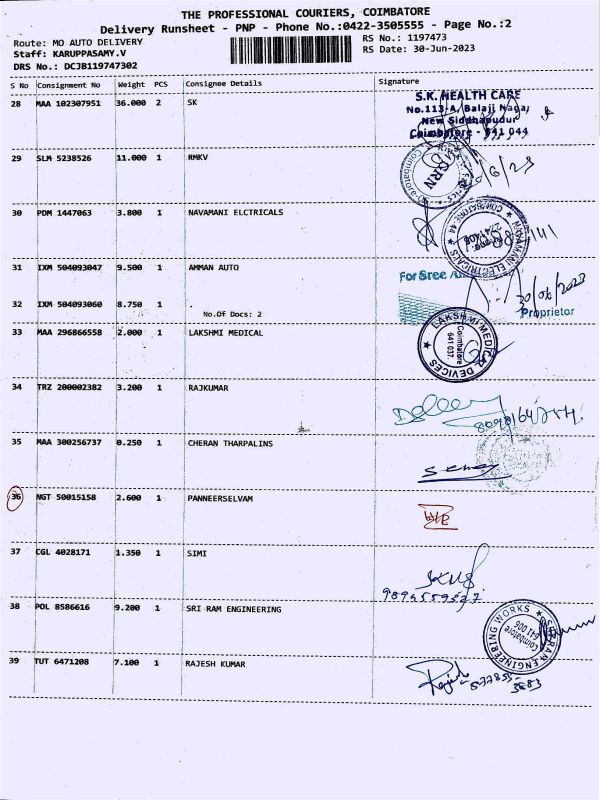 THE PROFESSIONAL COURIERS, COIMBATORE
Delivery Runsheet - PNP - Phone No.:0422-3505555 - Page No.:2
Route: MO AUTO DELIVERY
RS No.: 1197473
Staff: KARUPPASAMY.V
RS Date: 30-Jun-2023
DRS No.: DCJB119747302
S No Consignment No Weight PCS Consignee Details Signature
28 MAA 102307951 36.000 2 SK
S.K. HEALTH CARE
No.113-A, Balaji Nagar,
New Siddhapudur
Coimbatore - 641 044
29 SLM 5238526 11.000 1 RMKV
30 PDM 1447063 3.800 1 NAVAMANI ELCTRICALS
NAVAMANI ELECTRICALS
COIMBATORE 44
31 IXM 504093047 9.500 1 AMMAN AUTO
For Sree
32 IXM 504093060 8.750 1 .
No.Of Docs: 2
30/06/2023
Proprietor
33 MAA 296866558 2.000 1 LAKSHMI MEDICAL
LAKSHMI MEDICAL DEVICES
Coimbatore
641 037.
34 TRZ 200002382 3.200 1 RAJKUMAR
35 MAA 300256737 0.250 1 CHERAN THARPALINS
36 NGT 50015158 2.600 1 PANNEERSELVAM
37 CGL 4028171 1.350 1 SIMI
38 POL 8586616 9.200 1 SRI RAM ENGINEERING
SRI RAM ENGINEERING WORKS
Coimbatore
641 006
39 TUT 6471208 7.100 1 RAJESH KUMAR